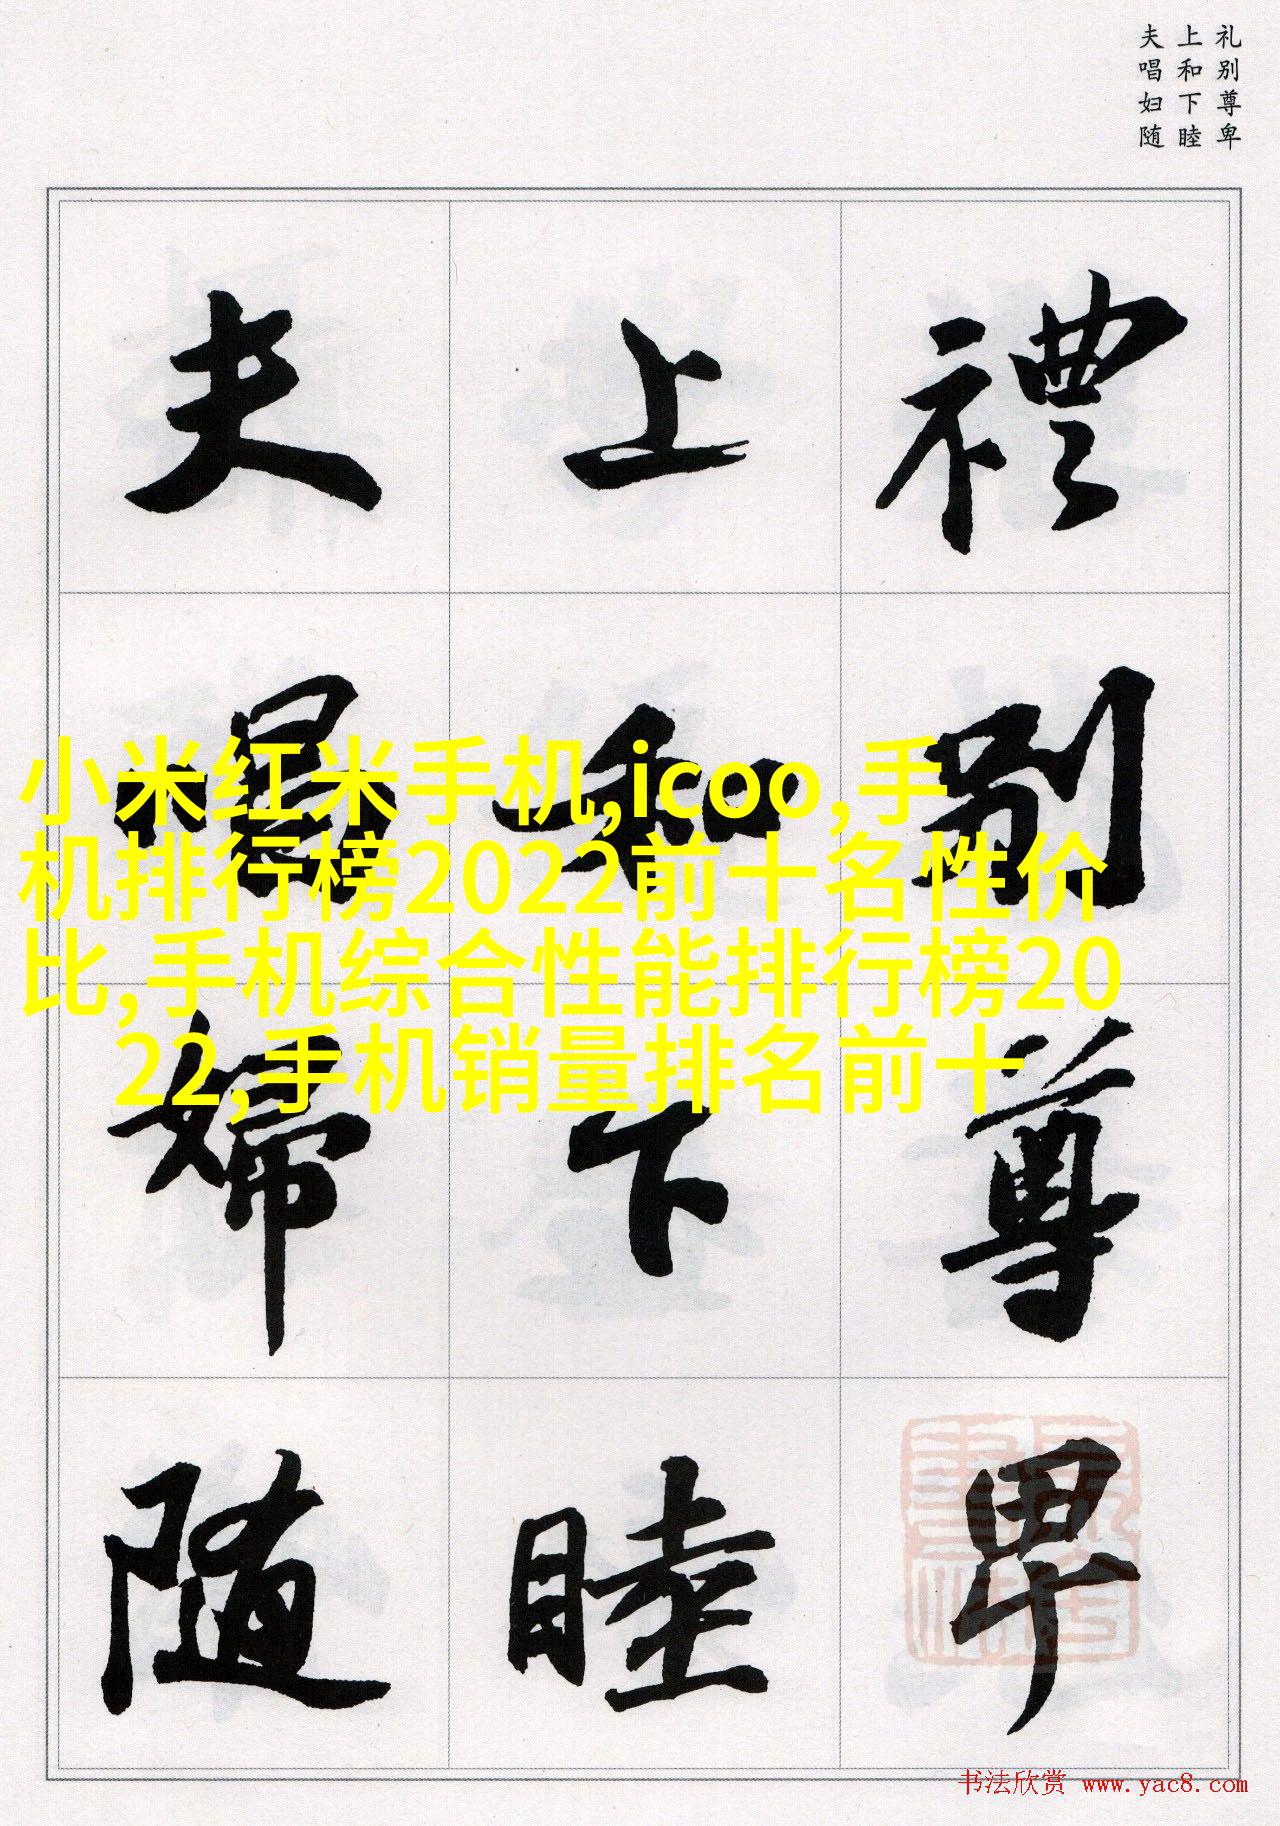 礼别尊卑
上和下睦
夫唱妇随
禮别尊卑
上和下睦
夫唱婦随
小米红米手机,icoo,手
机排行榜2022前十名性价
比,手机综合性能排行榜20
22,手机销量排名前十
书法欣赏 www.yac8.com